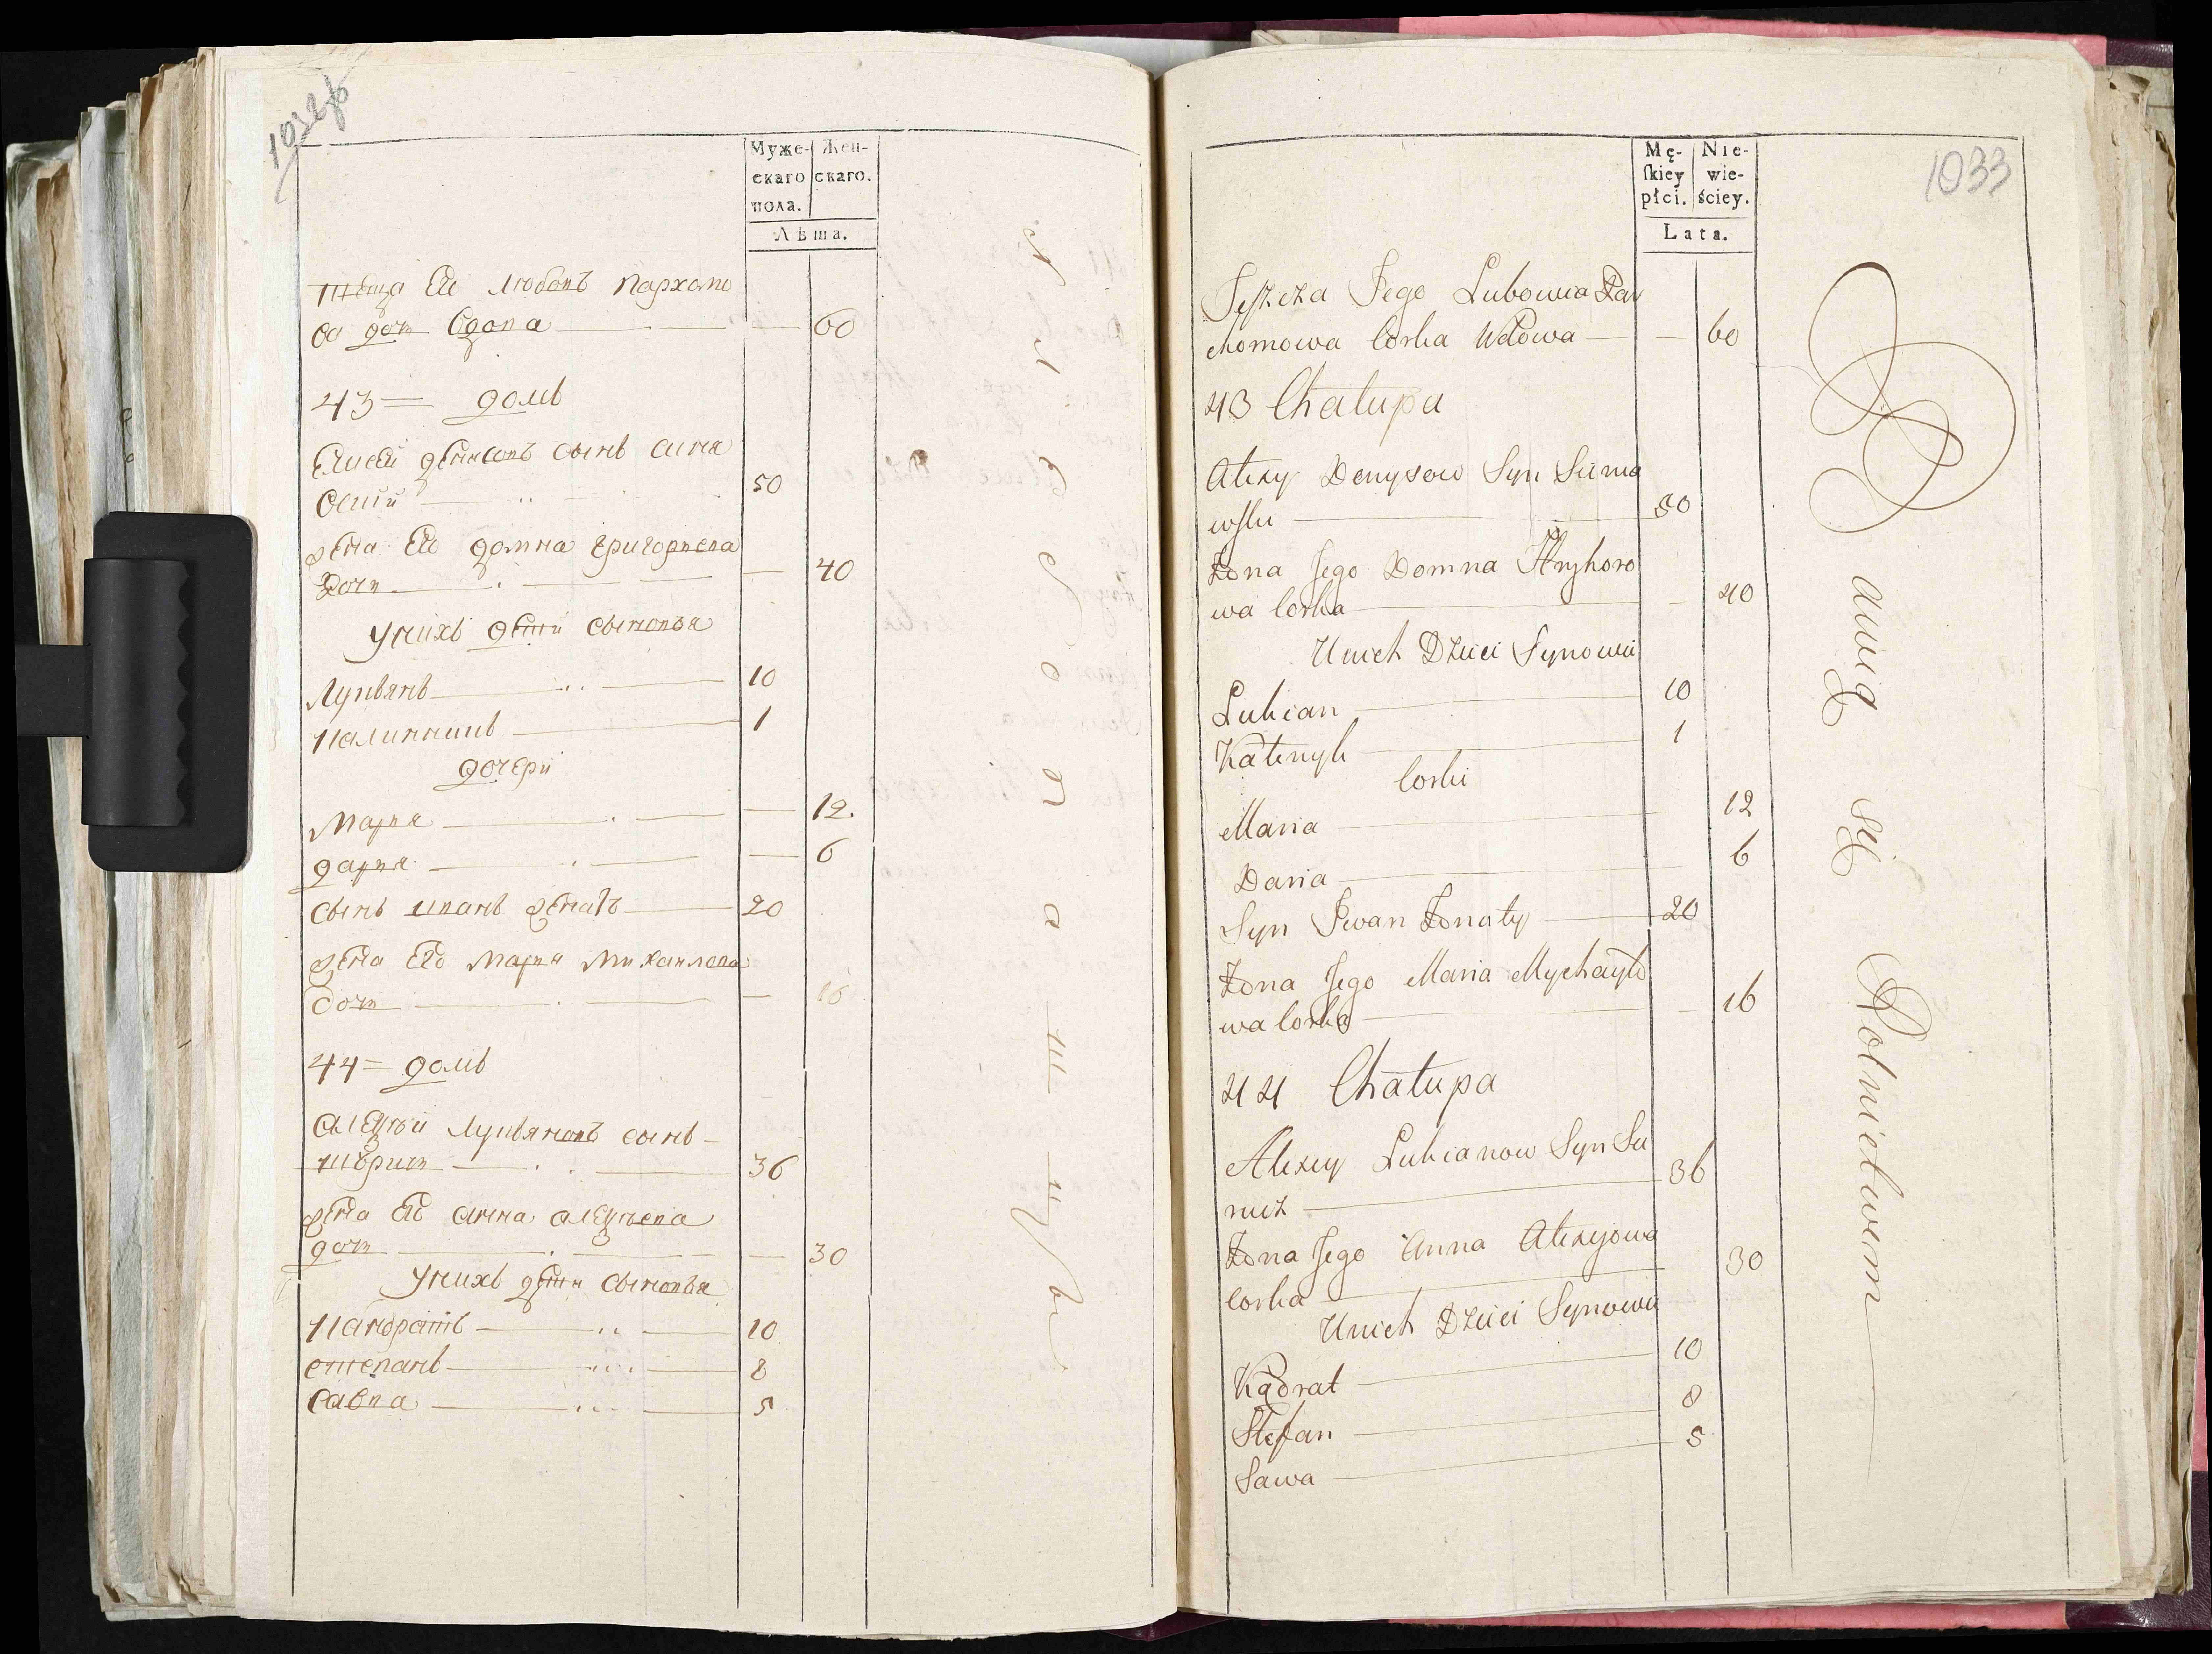 1032об
Муже-
скаго
пола.
Жен-
скаго.
Лѣта.
теща Его Любовъ Пархомо
ва дочъ Вдова — 60
43 = домъ
Елисей денисовъ сынъ сима
50
жена Его домна григорьева
дочь — 40
У нихъ дѣти сыновья
Лукьянъ — 10
Калинникъ — 1
дочери
Марья — 12.
дарья — 6
сынъ иванъ женатъ — 20
жена Его Марья Михаилова
дочь — 16
44 = домъ
алексѣй Лукьяновъ сынъ
36
жена Его анна алексѣева
дочь — 30
У нихъ дѣти сыновья
Кандратъ — 10
степанъ — 8
савва — 5
1033
Mę-
ſkiey
płci.
Nie-
wie-
ściey.
Lata.
Teszcza Jego Lubowia Par
chomowa Corka Wdowa — 60
43 Chałupa
Alexy Denysow Syn
50
Żona Jego Domna Hryhoro
wa Corka — 40
U nich Dzieci Synowie
Lukian — 10
Kalenyk — 1
Corki
Maria — 12
Daria — 6
Syn Iwan Żonaty — 20
Żona Jego Maria Mychayło
wa Corka — 16
44 Chałupa
Alexey Lukianow Syn Su
36
Żona Jego Anna Alexejowa
Corka — 30
U nich Dzieci Synowie
Kądrat — 10
Stefan — 8
Sawa — 5
Bawią się Rolnictwem